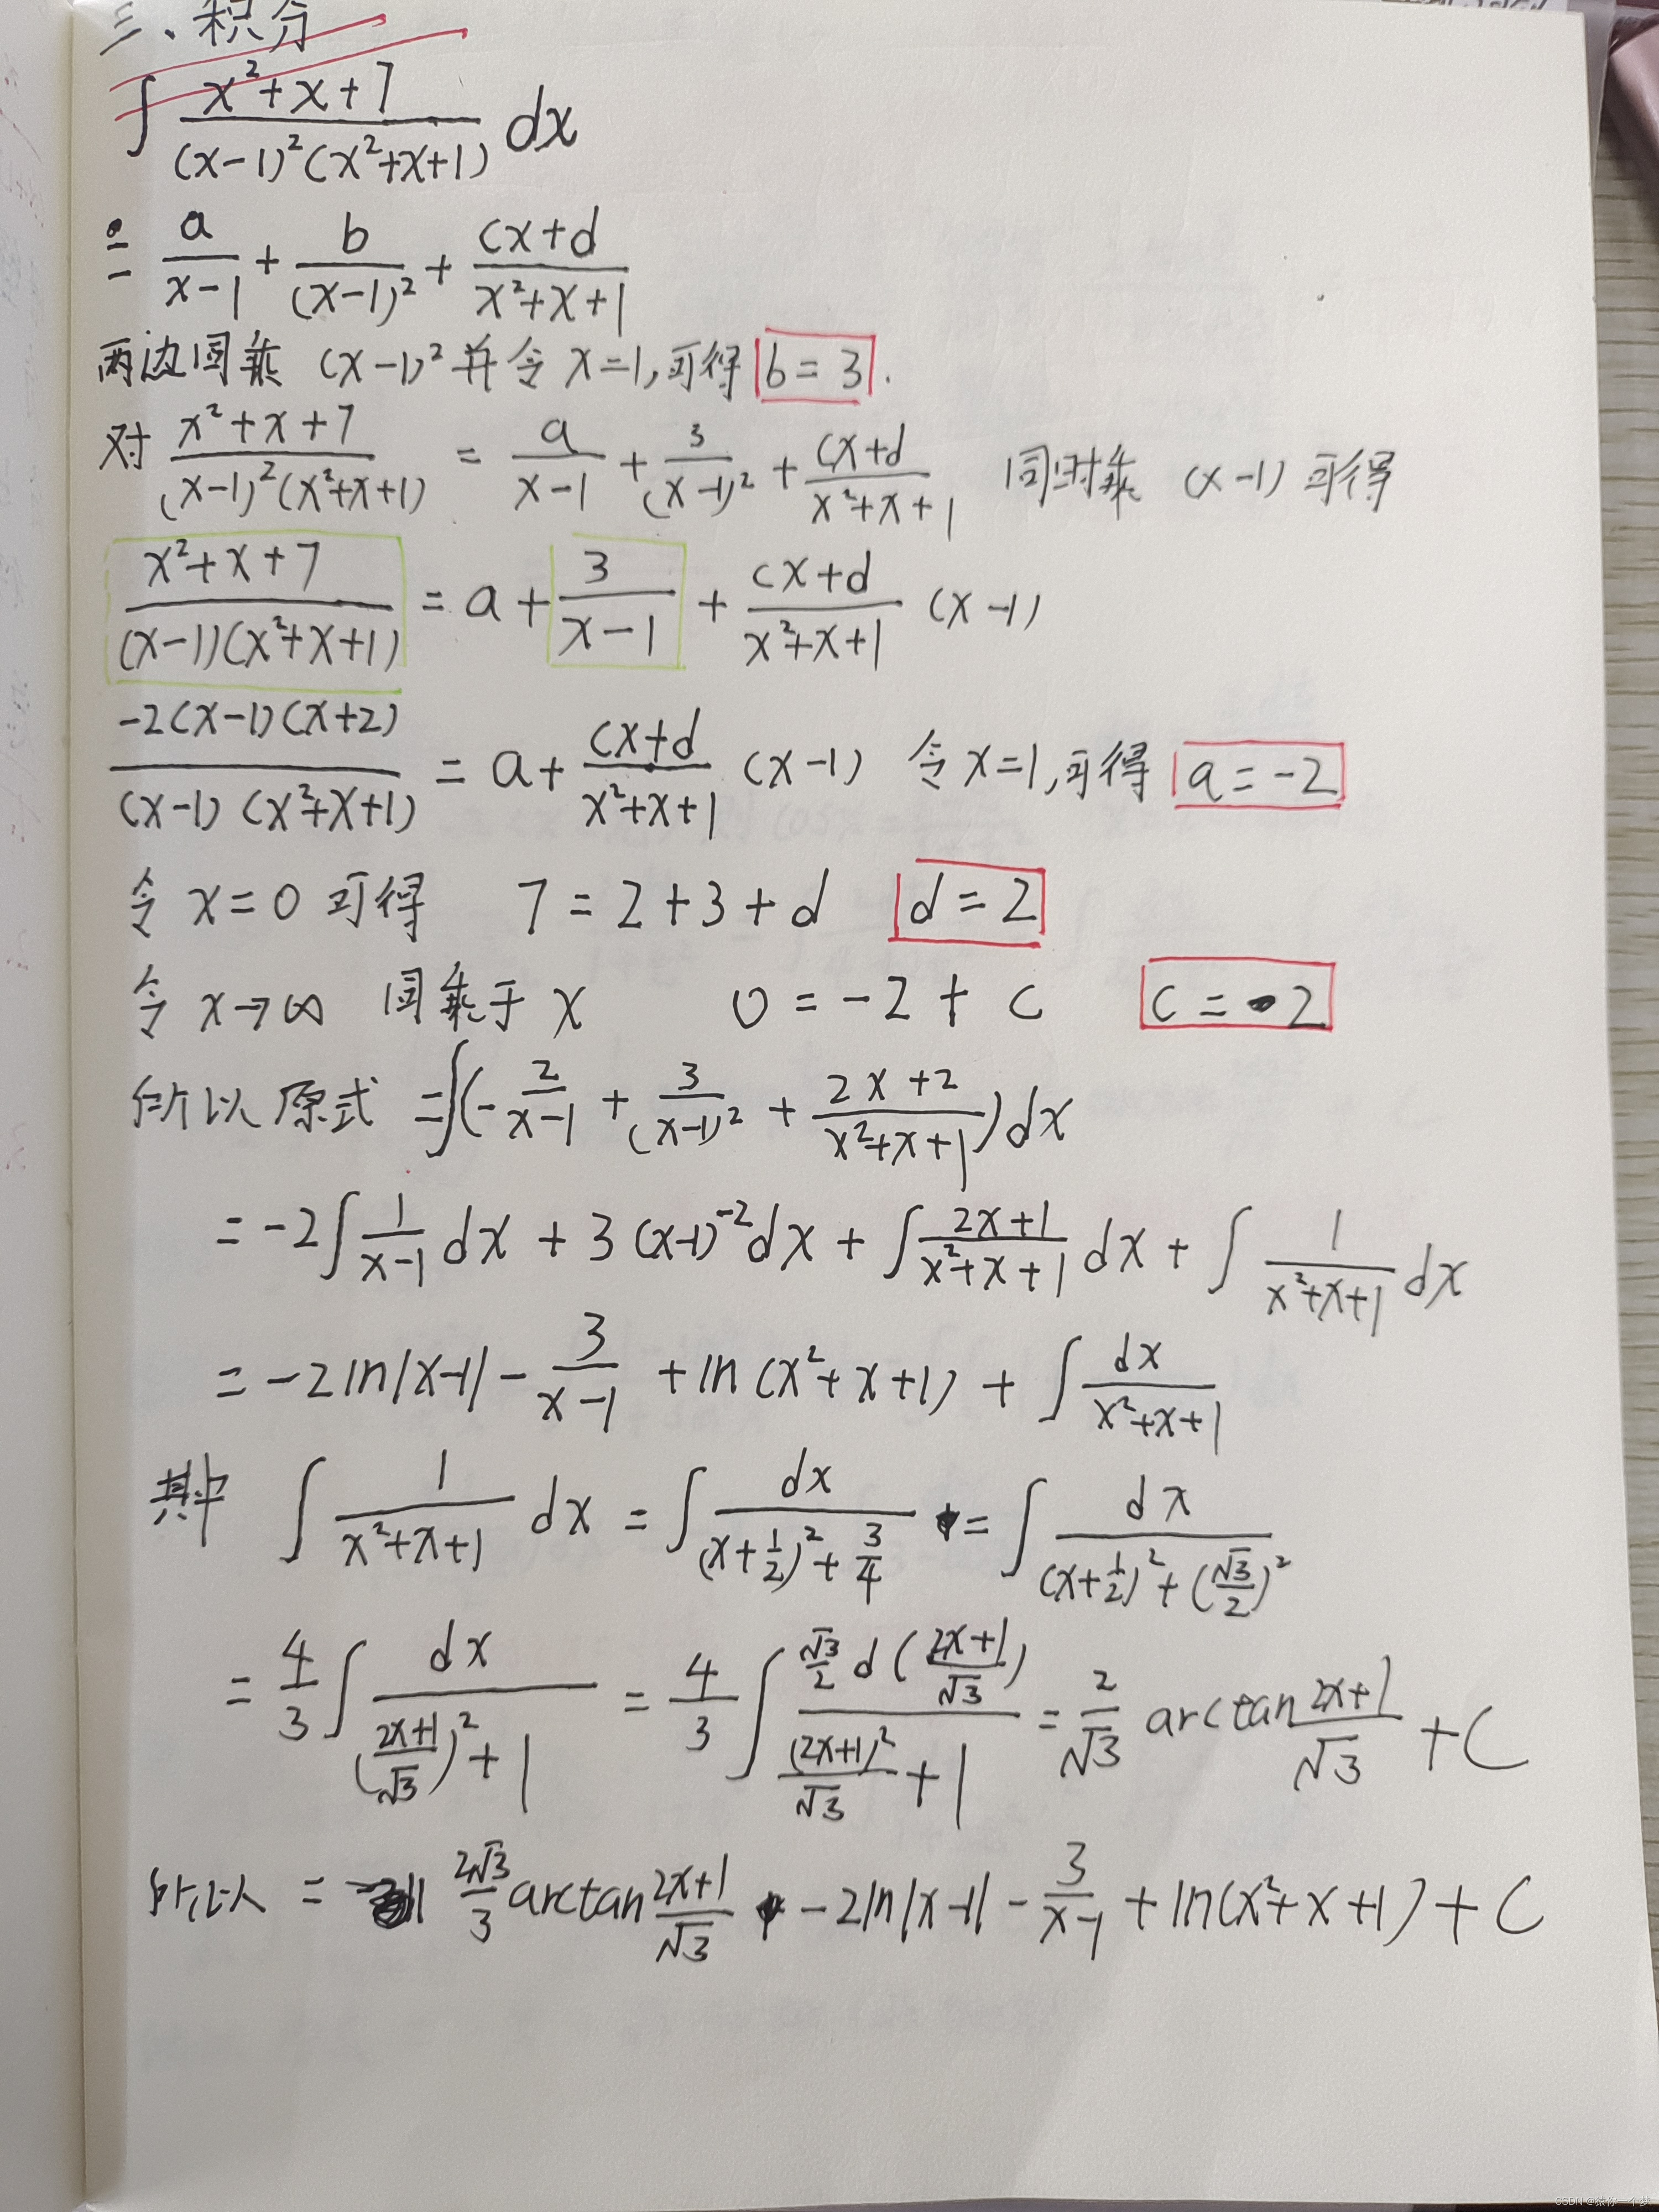 三、积分
∫ (x²+x+7)/((x-1)²(x²+x+1)) dx
= a/(x-1) + b/(x-1)² + (cx+d)/(x²+x+1)
两边同乘 (x-1)² 并令 x=1,可得 b=3.
对 (x²+x+7)/((x-1)²(x²+x+1)) = a/(x-1) + 3/(x-1)² + (cx+d)/(x²+x+1) 同时乘 (x-1) 可得
(x²+x+7)/((x-1)(x²+x+1)) = a + 3/(x-1) + (cx+d)/(x²+x+1) (x-1)
-2(x-1)(x+2)/((x-1)(x²+x+1)) = a + (cx+d)/(x²+x+1) (x-1) 令 x=1,可得 a=-2
令 x=0 可得 7=2+3+d d=2
令 x→∞ 同乘于 x 0=-2+c c=2
所以 原式 =∫(-2/(x-1) + 3/(x-1)² + (2x+2)/(x²+x+1))dx
= -2∫ 1/(x-1) dx + 3(x-1)⁻²dx + ∫ (2x+1)/(x²+x+1) dx + ∫ 1/(x²+x+1) dx
= -2ln|x-1| - 3/(x-1) + ln(x²+x+1) + ∫ dx/(x²+x+1)
其中 ∫ 1/(x²+x+1) dx = ∫ dx/((x+1/2)²+3/4) = ∫ dx/((x+1/2)²+(√3/2)²)
= 4/3 ∫ dx/(((2x+1)/√3)²+1) = 4/3 ∫ (√3/2 d((2x+1)/√3))/((2x+1)²/√3+1) = 2/√3 arctan (2x+1)/√3 + C
所以 = 2√3/3 arctan (2x+1)/√3 - 2ln|x-1| - 3/(x-1) + ln(x²+x+1) + C